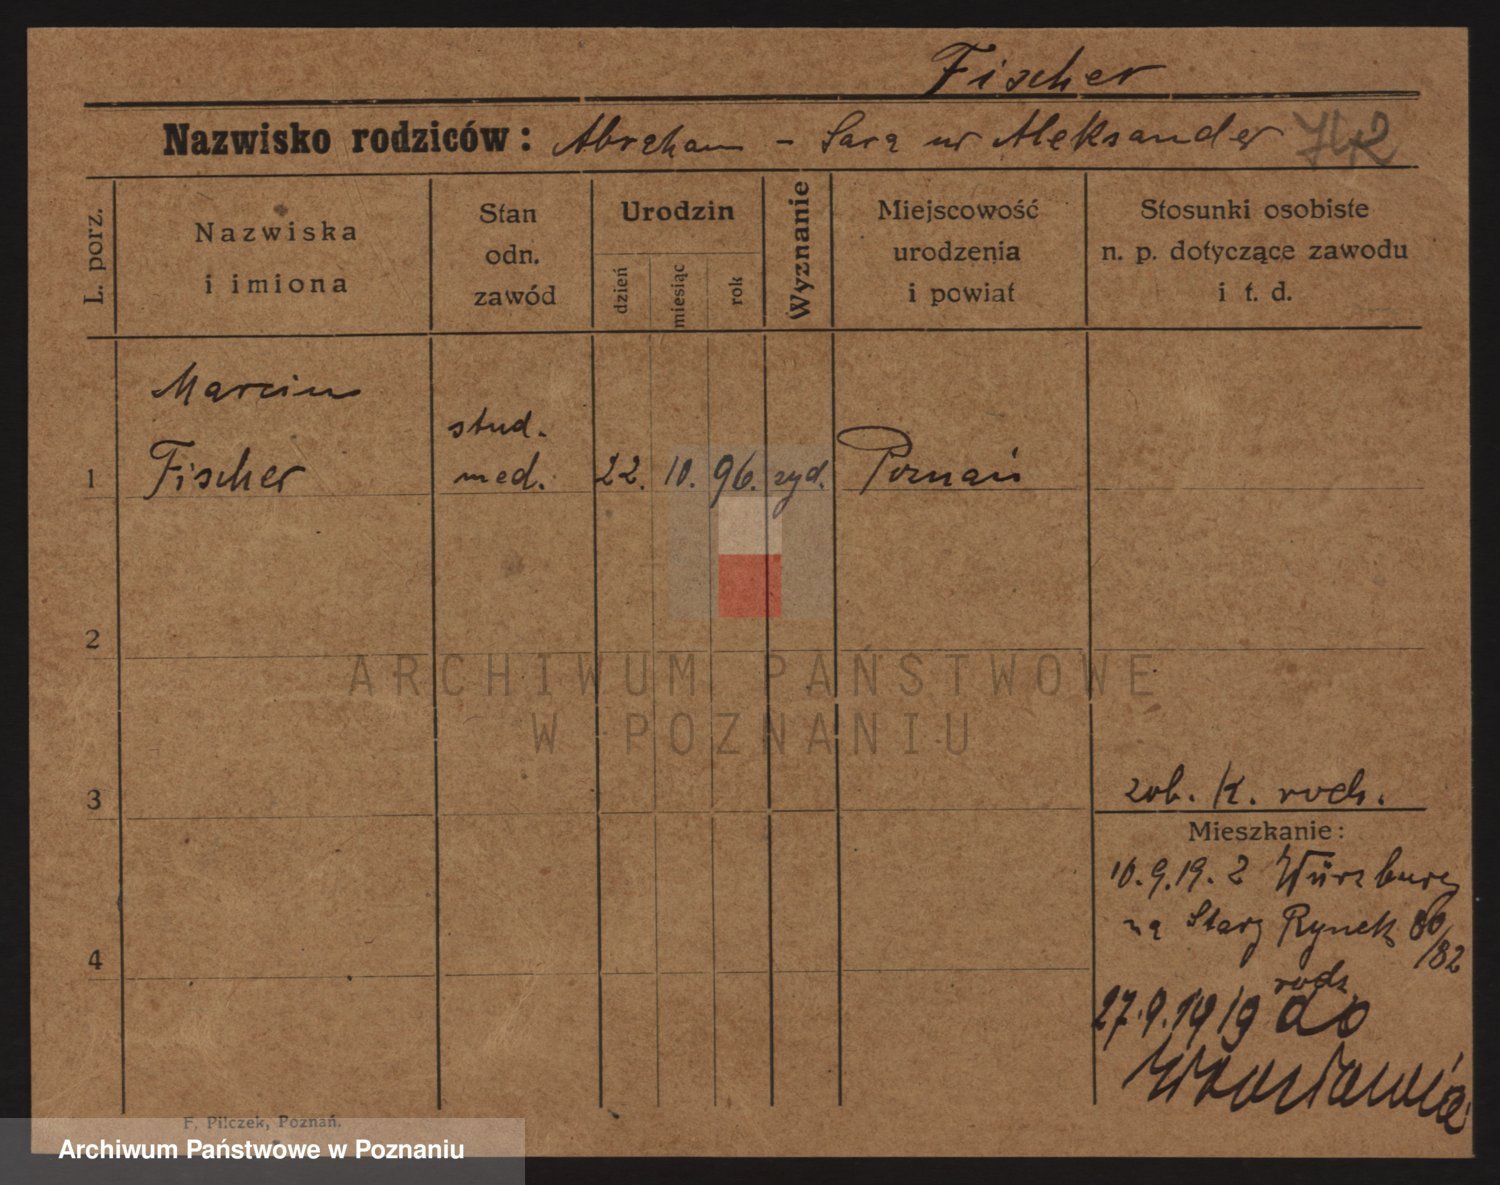 Fischer
Nazwisko rodziców: Abraham - Sara ur Aleksander
L. porz.
Nazwiska
i imiona
Stan
odn.
zawód
Urodzin
dzień
miesiąc
rok
Wyznanie
Miejscowość
urodzenia
i powiat
Stosunki osobiste
n. p. dotyczące zawodu
i t. d.
Marcin
1 Fischer stud. med. 22. 10. 96. żyd. Poznań
2
3
zob. K. rodz.
Mieszkanie:
10.9.19. z Würzburg
na Stary Rynek 80
/82
rodz
4
27.9.1919 do
Wrocławia
F. Pilczek, Poznań.
ARCHIWUM PAŃSTWOWE
W POZNANIU
Archiwum Państwowe w Poznaniu